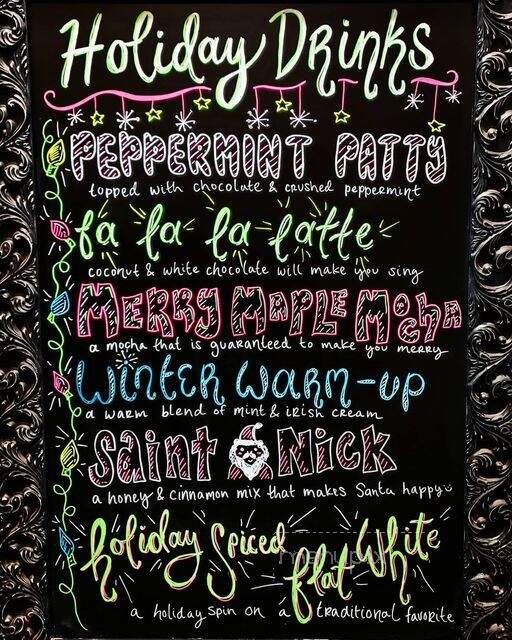 Holiday Drinks
PEPPERMINT PATTY
topped with chocolate & crushed peppermint
fa la la latte
coconut & white chocolate will make you sing
MERRY MAPLE MOCHA
a mocha that is guaranteed to make you merry
WINTER WARM-UP
a warm blend of mint & irish cream
Saint Nick
a honey & cinnamon mix that makes Santa happy
holiday Spiced flat White
a holiday spin on a traditional favorite